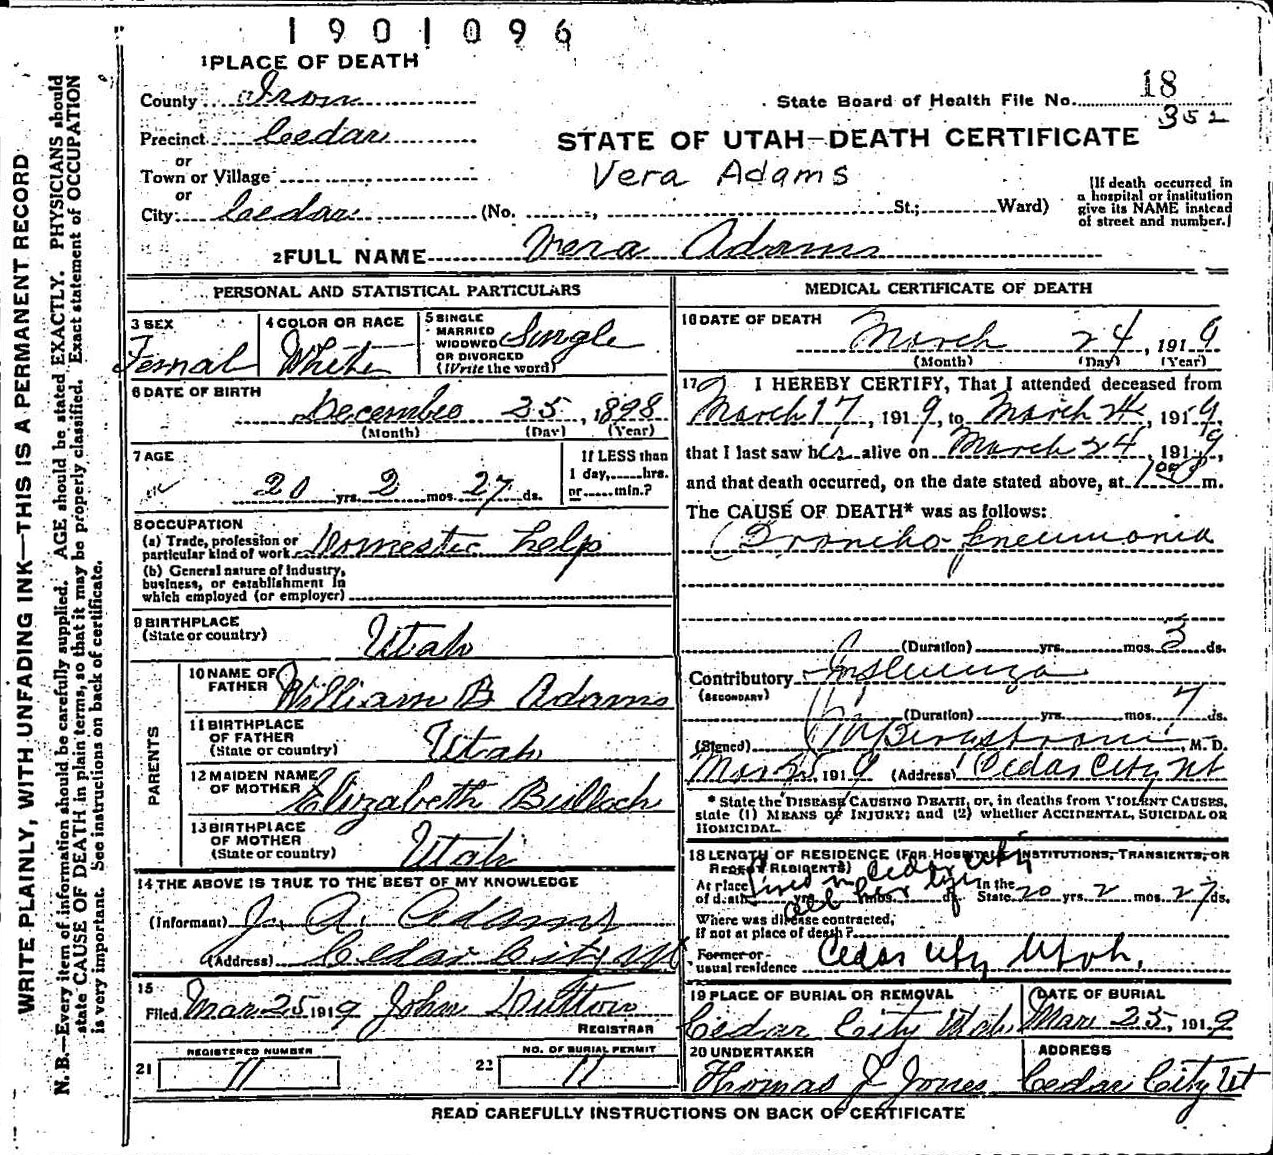 1901096
1 PLACE OF DEATH
County Iron
18
State Board of Health File No.
352
Precinct Cedar
STATE OF UTAH—DEATH CERTIFICATE
or
Town or Village
Vera Adams
or
City Cedar (No. , St.; Ward)
[If death occurred in
a hospital or institution
give its NAME instead
of street and number.]
2 FULL NAME Vera Adams
PERSONAL AND STATISTICAL PARTICULARS
3 SEX
Femal
4 COLOR OR RACE
White
5 SINGLE
MARRIED
WIDOWED
OR DIVORCED
(Write the word)
Single
6 DATE OF BIRTH
December 25, 1898
(Month) (Day) (Year)
7 AGE
20 yrs. 2 mos. 27 ds.
If LESS than
1 day, hrs.
or min.?
8 OCCUPATION
(a) Trade, profession or
particular kind of work Domestic help
(b) General nature of industry,
business, or establishment in
which employed (or employer)
9 BIRTHPLACE
(State or country)
Utah
PARENTS
10 NAME OF
FATHER
William B Adams
11 BIRTHPLACE
OF FATHER
(State or country)
Utah
12 MAIDEN NAME
OF MOTHER
Elizabeth Bulloch
13 BIRTHPLACE
OF MOTHER
(State or country)
Utah
14 THE ABOVE IS TRUE TO THE BEST OF MY KNOWLEDGE
(Informant) J. A. Adams
(Address) Cedar City Ut
15
Filed Mar 25 1919 John
REGISTRAR
REGISTERED NUMBER
21 11
NO. OF BURIAL PERMIT
22 11
MEDICAL CERTIFICATE OF DEATH
16 DATE OF DEATH
March 24, 1919
(Month) (Day) (Year)
17 I HEREBY CERTIFY, That I attended deceased from
March 17, 1919, to March 24, 1919,
that I last saw her alive on March 24, 1919,
and that death occurred, on the date stated above, at m.
The CAUSE OF DEATH* was as follows:
Broncho pneumonia
(Duration) yrs. mos. 3 ds.
Contributory Influenza
(SECONDARY)
(Duration) yrs. mos. 7 ds.
(Signed) , M. D.
Mar 25, 1919 (Address) Cedar City Ut
* State the DISEASE CAUSING DEATH, or, in deaths from VIOLENT CAUSES,
state (1) MEANS OF INJURY; and (2) whether ACCIDENTAL, SUICIDAL OR
HOMICIDAL.
18 LENGTH OF RESIDENCE (FOR HOSPITALS, INSTITUTIONS, TRANSIENTS, OR
RECENT RESIDENTS)
Lived in Cedar City
all her life
At place
of death yrs. mos. ds.
In the
State 20 yrs. 2 mos. 27 ds.
Where was disease contracted,
if not at place of death?
Former or
usual residence Cedar City Utah.
19 PLACE OF BURIAL OR REMOVAL
Cedar City Utah
DATE OF BURIAL
Mar 25, 1919
20 UNDERTAKER
Thomas J Jones
ADDRESS
Cedar City Ut
READ CAREFULLY INSTRUCTIONS ON BACK OF CERTIFICATE
WRITE PLAINLY, WITH UNFADING INK—THIS IS A PERMANENT RECORD
N. B.—Every item of information should be carefully supplied. AGE should be stated EXACTLY. PHYSICIANS should
state CAUSE OF DEATH in plain terms, so that it may be properly classified. Exact statement of OCCUPATION
is very important. See instructions on back of certificate.